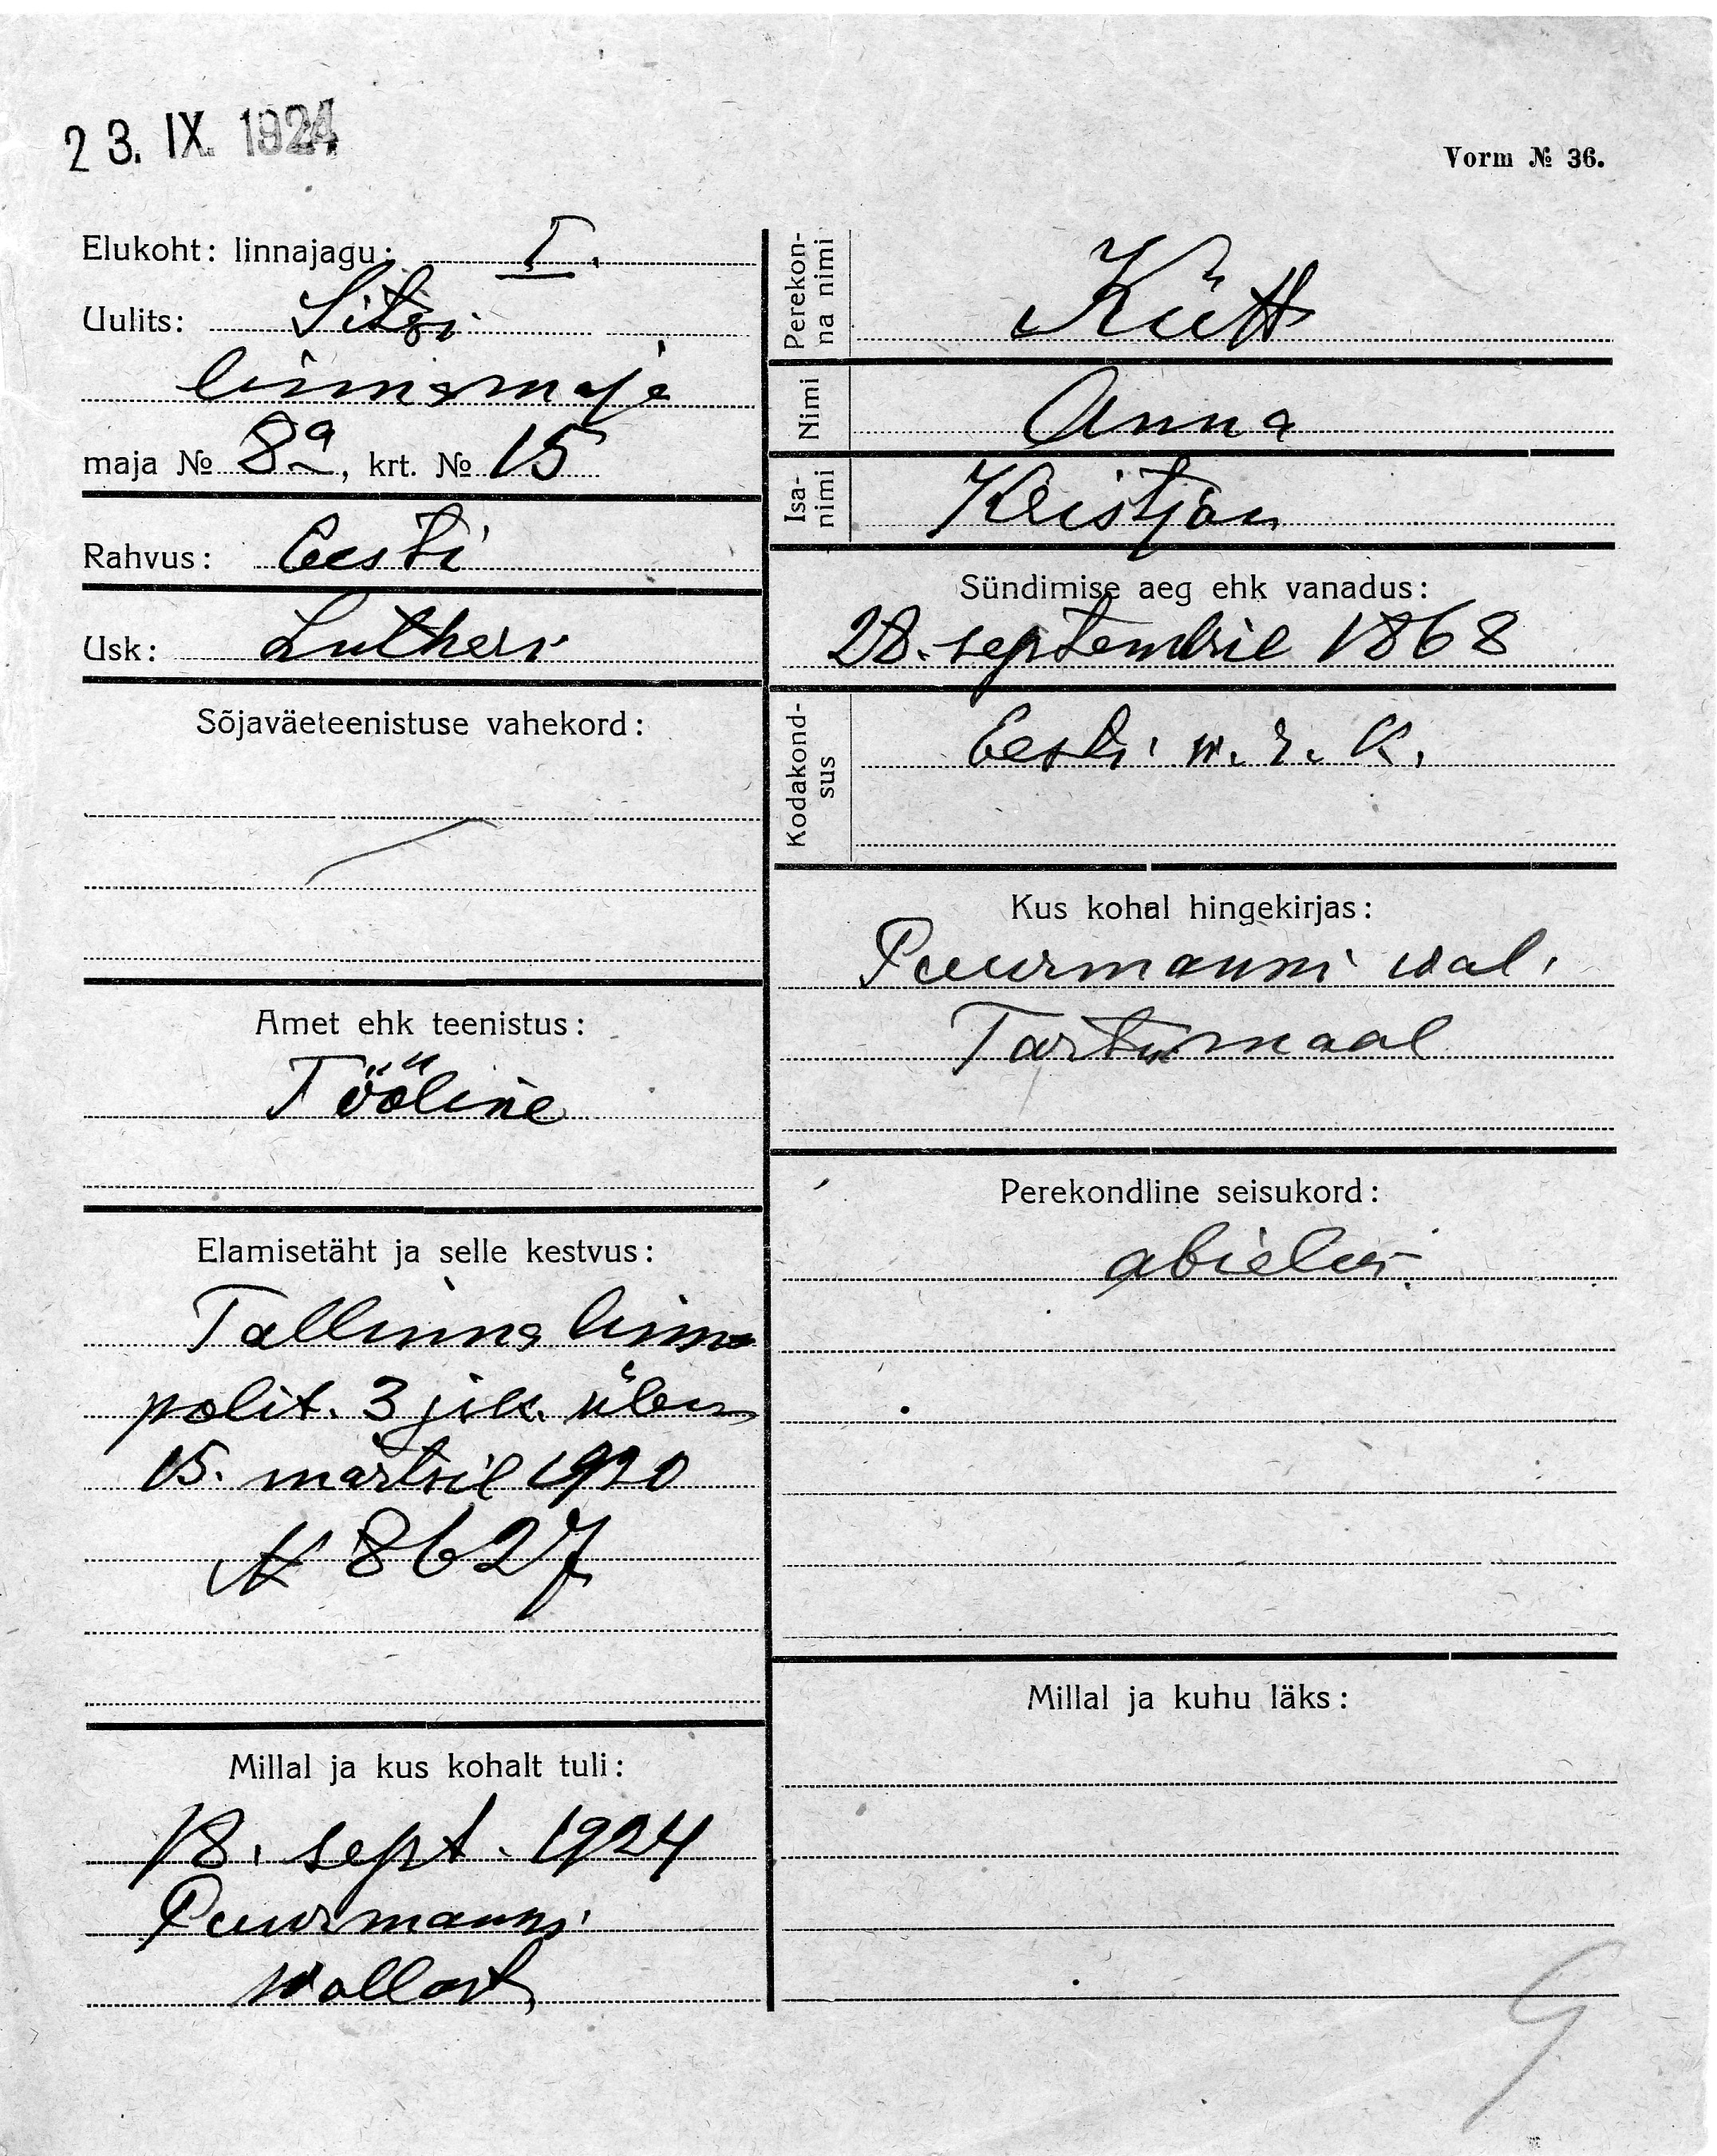 23. IX. 1924
Vorm № 36.
Elukoht: linnajagu: I.
Uulits: Sitsi
linnamaja
maja № 8a, krt. № 15
Rahvus: Eesti
Usk: Lutheri
Sõjaväeteenistuse vahekord:
Amet ehk teenistus:
Tööline
Elamisetäht ja selle kestvus:
Tallinna linna
polit. 3 jsk. ülem
15. märtsil 1920
N 8627
Millal ja kus kohalt tuli:
18. sept. 1924
Puurmanni
wallast
Perekon-
na nimi
Kütt
Nimi Anna
Isa-
nimi
Kristjan
Sündimise aeg ehk vanadus:
28. septembril 1868
Kodakond-
sus
Eesti w. r. k.
Kus kohal hingekirjas:
Puurmanni wal.
Tartumaal
Perekondline seisukord:
abielus
Millal ja kuhu läks: